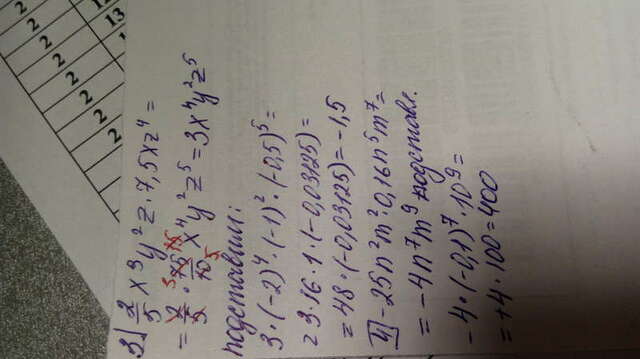 2 2 2 2 2 2
13
3) 2/5 x³y²z · 7,5xz⁴ =
= 2/5 · 75/10 x⁴y²z⁵ = 3x⁴y²z⁵
подставим:
3 · (-2)⁴ · (-1)² · (-0,5)⁵ =
= 3 · 16 · 1 · (-0,03125) =
= 48 · (-0,03125) = -1,5
4) -25n²m² · 0,16n⁵m⁷ =
= -4n⁷m⁹ подставл.
-4 · (-0,1)⁷ · 10⁹ =
= +4 · 100 = 400